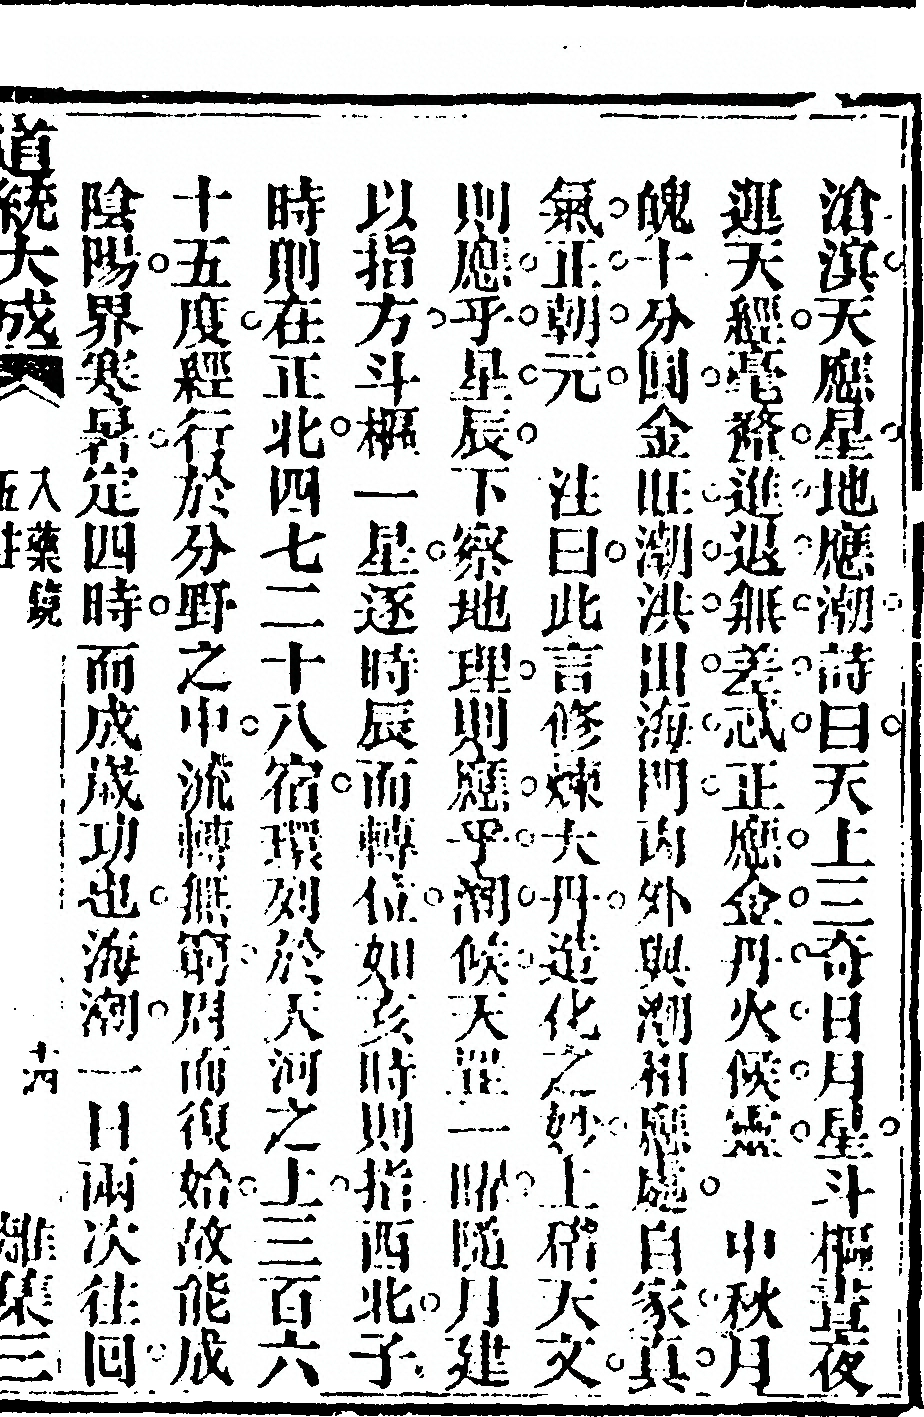 滄溟天應星地應潮詩曰天上三奇日月星斗樞晝夜
運天經毫釐進退無差忒正應金丹火候靈　中秋月
魄十分圓金旺潮洪出海門內外與潮相應處自家真
氣正朝元　注曰此言修煉大丹造化之妙上稽天文
則應乎星辰下察地理則應乎潮候天罡一昭隨月建
以指方斗樞一星逐時辰而轉位如亥時則指西北子
時則在正北四七二十八宿環列於天河之上三百六
十五度經行於分野之中流轉無窮周而復始故能成
陰陽界寒暑定四時而成歲功也海潮一日兩次往回
道統大成　入藥鏡　五注　十四　雖集三